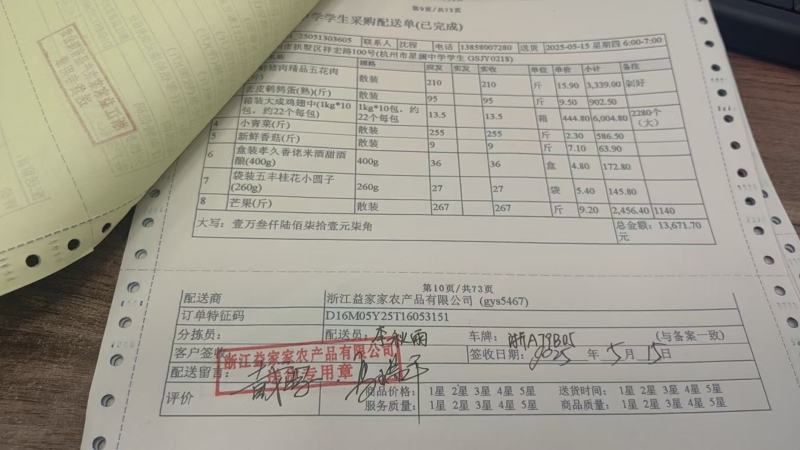 第9页/共73页
学学生采购配送单(已完成)
25051303605 联系人 沈程 电话 13858007280 送货 2025-05-15 星期四 6:00-7:00
市拱墅区祥宏路100号(杭州市星澜中学学生 GSJY0218)
规格 应发 实发 实收 单位 单价 小计 备注
猪肉精品五花肉 散装 210 210 斤 15.90 3,339.00 剁好
去皮鹌鹑蛋(熟)(斤) 散装 95 95 斤 9.50 902.50
箱装大成鸡翅中(1kg*10包，约22个每包) 1kg*10包，约22个每包 13.5 13.5 箱 444.80 6,004.80 2280个(大)
4 小青菜(斤) 散装 255 255 斤 2.30 586.50
5 新鲜香菇(斤) 散装 9 9 斤 7.10 63.90
6 盒装孝久香佬米酒甜酒酿(400g) 400g 36 36 盒 4.80 172.80
7 袋装五丰桂花小圆子(260g) 260g 27 27 袋 5.40 145.80
8 芒果(斤) 散装 267 267 斤 9.20 2,456.40 1140
大写：壹万叁仟陆佰柒拾壹元柒角 总金额：13,671.70元
第10页/共73页
配送商 浙江益家家农产品有限公司 (gys5467)
订单特征码 D16M05Y25T16053151
分拣员： 配送员：李秋雨 车牌：浙A79B05 (与备案一致)
客户签收 签收日期：2025 年 5月 15日
浙江益家家农产品有限公司
配送留言： 专用章
评价 商品价格： 1星 2星 3星 4星 5星 送货时间： 1星 2星 3星 4星 5星
服务质量： 1星 2星 3星 4星 5星 商品质量： 1星 2星 3星 4星 5星